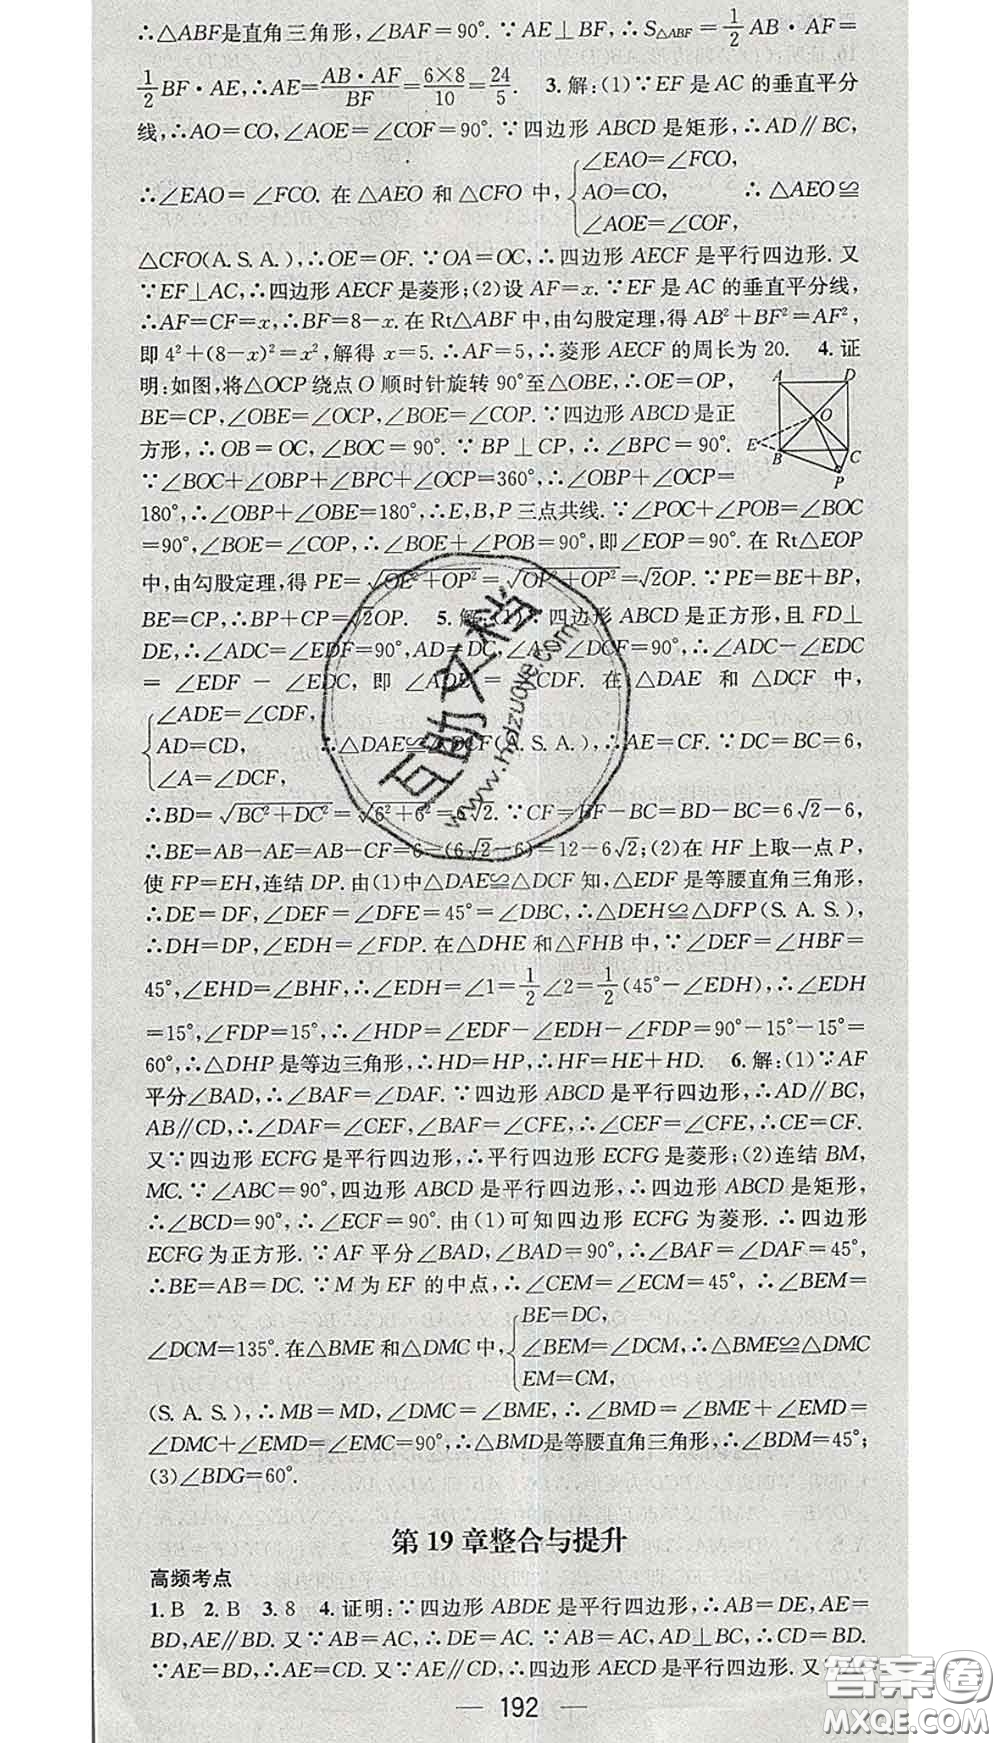 ∴△ABF是直角三角形,∠BAF=90°.∵AE⊥BF,∴S△ABF=1/2 AB·AF=
1/2 BF·AE,∴AE=AB·AF/BF=6×8/10=24/5. 3.解:(1)∵EF是AC的垂直平分
线,∴AO=CO,∠AOE=∠COF=90°.∵四边形ABCD是矩形,∴AD∥BC,
∠EAO=∠FCO,
∴∠EAO=∠FCO.在△AEO和△CFO中, AO=CO, ∴△AEO≌
∠AOE=∠COF,
△CFO(A.S.A.),∴OE=OF.∵OA=OC,∴四边形AECF是平行四边形.又
∵EF⊥AC,∴四边形AECF是菱形;(2)设AF=x.∵EF是AC的垂直平分线,
∴AF=CF=x,∴BF=8-x.在Rt△ABF中,由勾股定理,得AB²+BF²=AF²,
即4²+(8-x)²=x²,解得x=5.∴AF=5,∴菱形AECF的周长为20. 4.证
明:如图,将△OCP绕点O顺时针旋转90°至△OBE,∴OE=OP,
BE=CP,∠OBE=∠OCP,∠BOE=∠COP.∵四边形ABCD是正
方形,∴OB=OC,∠BOC=90°.∵BP⊥CP,∴∠BPC=90°.
∵∠BOC+∠OBP+∠BPC+∠OCP=360°,∴∠OBP+∠OCP=
A D
O
E
B C
P
180°,∴∠OBP+∠OBE=180°,∴E,B,P三点共线.∵∠POC+∠POB=∠BOC
=90°,∠BOE=∠COP,∴∠BOE+∠POB=90°,即∠EOP=90°.在Rt△EOP
中,由勾股定理,得PE=√(OE²+OP²)=√(OP²+OP²)=√2OP.∵PE=BE+BP,
BE=CP,∴BP+CP=√2OP. 5.解:(1)∵四边形ABCD是正方形,且FD⊥
DE,∴∠ADC=∠EDF=90°,AD=DC,∠A=∠DCF=90°,∴∠ADC-∠EDC
=∠EDF-∠EDC,即∠ADE=∠CDF.在△DAE和△DCF中,
∠ADE=∠CDF,
AD=CD, ∴△DAE≌△DCF(A.S.A.),∴AE=CF.∵DC=BC=6,
∠A=∠DCF,
∴BD=√(BC²+DC²)=√(6²+6²)=6√2.∵CF=BF-BC=BD-BC=6√2-6,
∴BE=AB-AE=AB-CF=6-(6√2-6)=12-6√2;(2)在HF上取一点P,
使FP=EH,连结DP.由(1)中△DAE≌△DCF知,△EDF是等腰直角三角形,
∴DE=DF,∠DEF=∠DFE=45°=∠DBC,∴△DEH≌△DFP(S.A.S.),
∴DH=DP,∠EDH=∠FDP.在△DHE和△FHB中,∵∠DEF=∠HBF=
45°,∠EHD=∠BHF,∴∠EDH=∠1=1/2∠2=1/2(45°-∠EDH),∴∠EDH
=15°,∠FDP=15°,∴∠HDP=∠EDF-∠EDH-∠FDP=90°-15°-15°=
60°,∴△DHP是等边三角形,∴HD=HP,∴HF=HE+HD. 6.解:(1)∵AF
平分∠BAD,∴∠BAF=∠DAF.∵四边形ABCD是平行四边形,∴AD∥BC,
AB∥CD,∴∠DAF=∠CEF,∠BAF=∠CFE,∴∠CEF=∠CFE,∴CE=CF.
又∵四边形ECFG是平行四边形,∴四边形ECFG是菱形;(2)连结BM,
MC.∵∠ABC=90°,四边形ABCD是平行四边形,∴四边形ABCD是矩形,
∴∠BCD=90°,∴∠ECF=90°.由(1)可知四边形ECFG为菱形.∴四边形
ECFG为正方形.∵AF平分∠BAD,∠BAD=90°,∴∠BAF=∠DAF=45°,
∴BE=AB=DC.∵M为EF的中点,∴∠CEM=∠ECM=45°,∴∠BEM=
BE=DC,
∠DCM=135°.在△BME和△DMC中, ∠BEM=∠DCM,∴△BME≌△DMC
EM=CM,
(S.A.S.),∴MB=MD,∠DMC=∠BME,∴∠BMD=∠BME+∠EMD=
∠DMC+∠EMD=∠EMC=90°,∴△BMD是等腰直角三角形,∴∠BDM=45°;
(3)∠BDG=60°.
第19章整合与提升
高频考点
1.B 2.B 3.8 4.证明:∵四边形ABDE是平行四边形,∴AB=DE,AE=
BD,AE∥BD.又∵AB=AC,∴DE=AC.∵AB=AC,AD⊥BC,∴CD=BD.
∵AE=BD,∴AE=CD.又∵AE∥CD,∴四边形AECD是平行四边形.又
— 192 —
互助文档
www.hdzuoye.com
答案圈
MXQE.COM